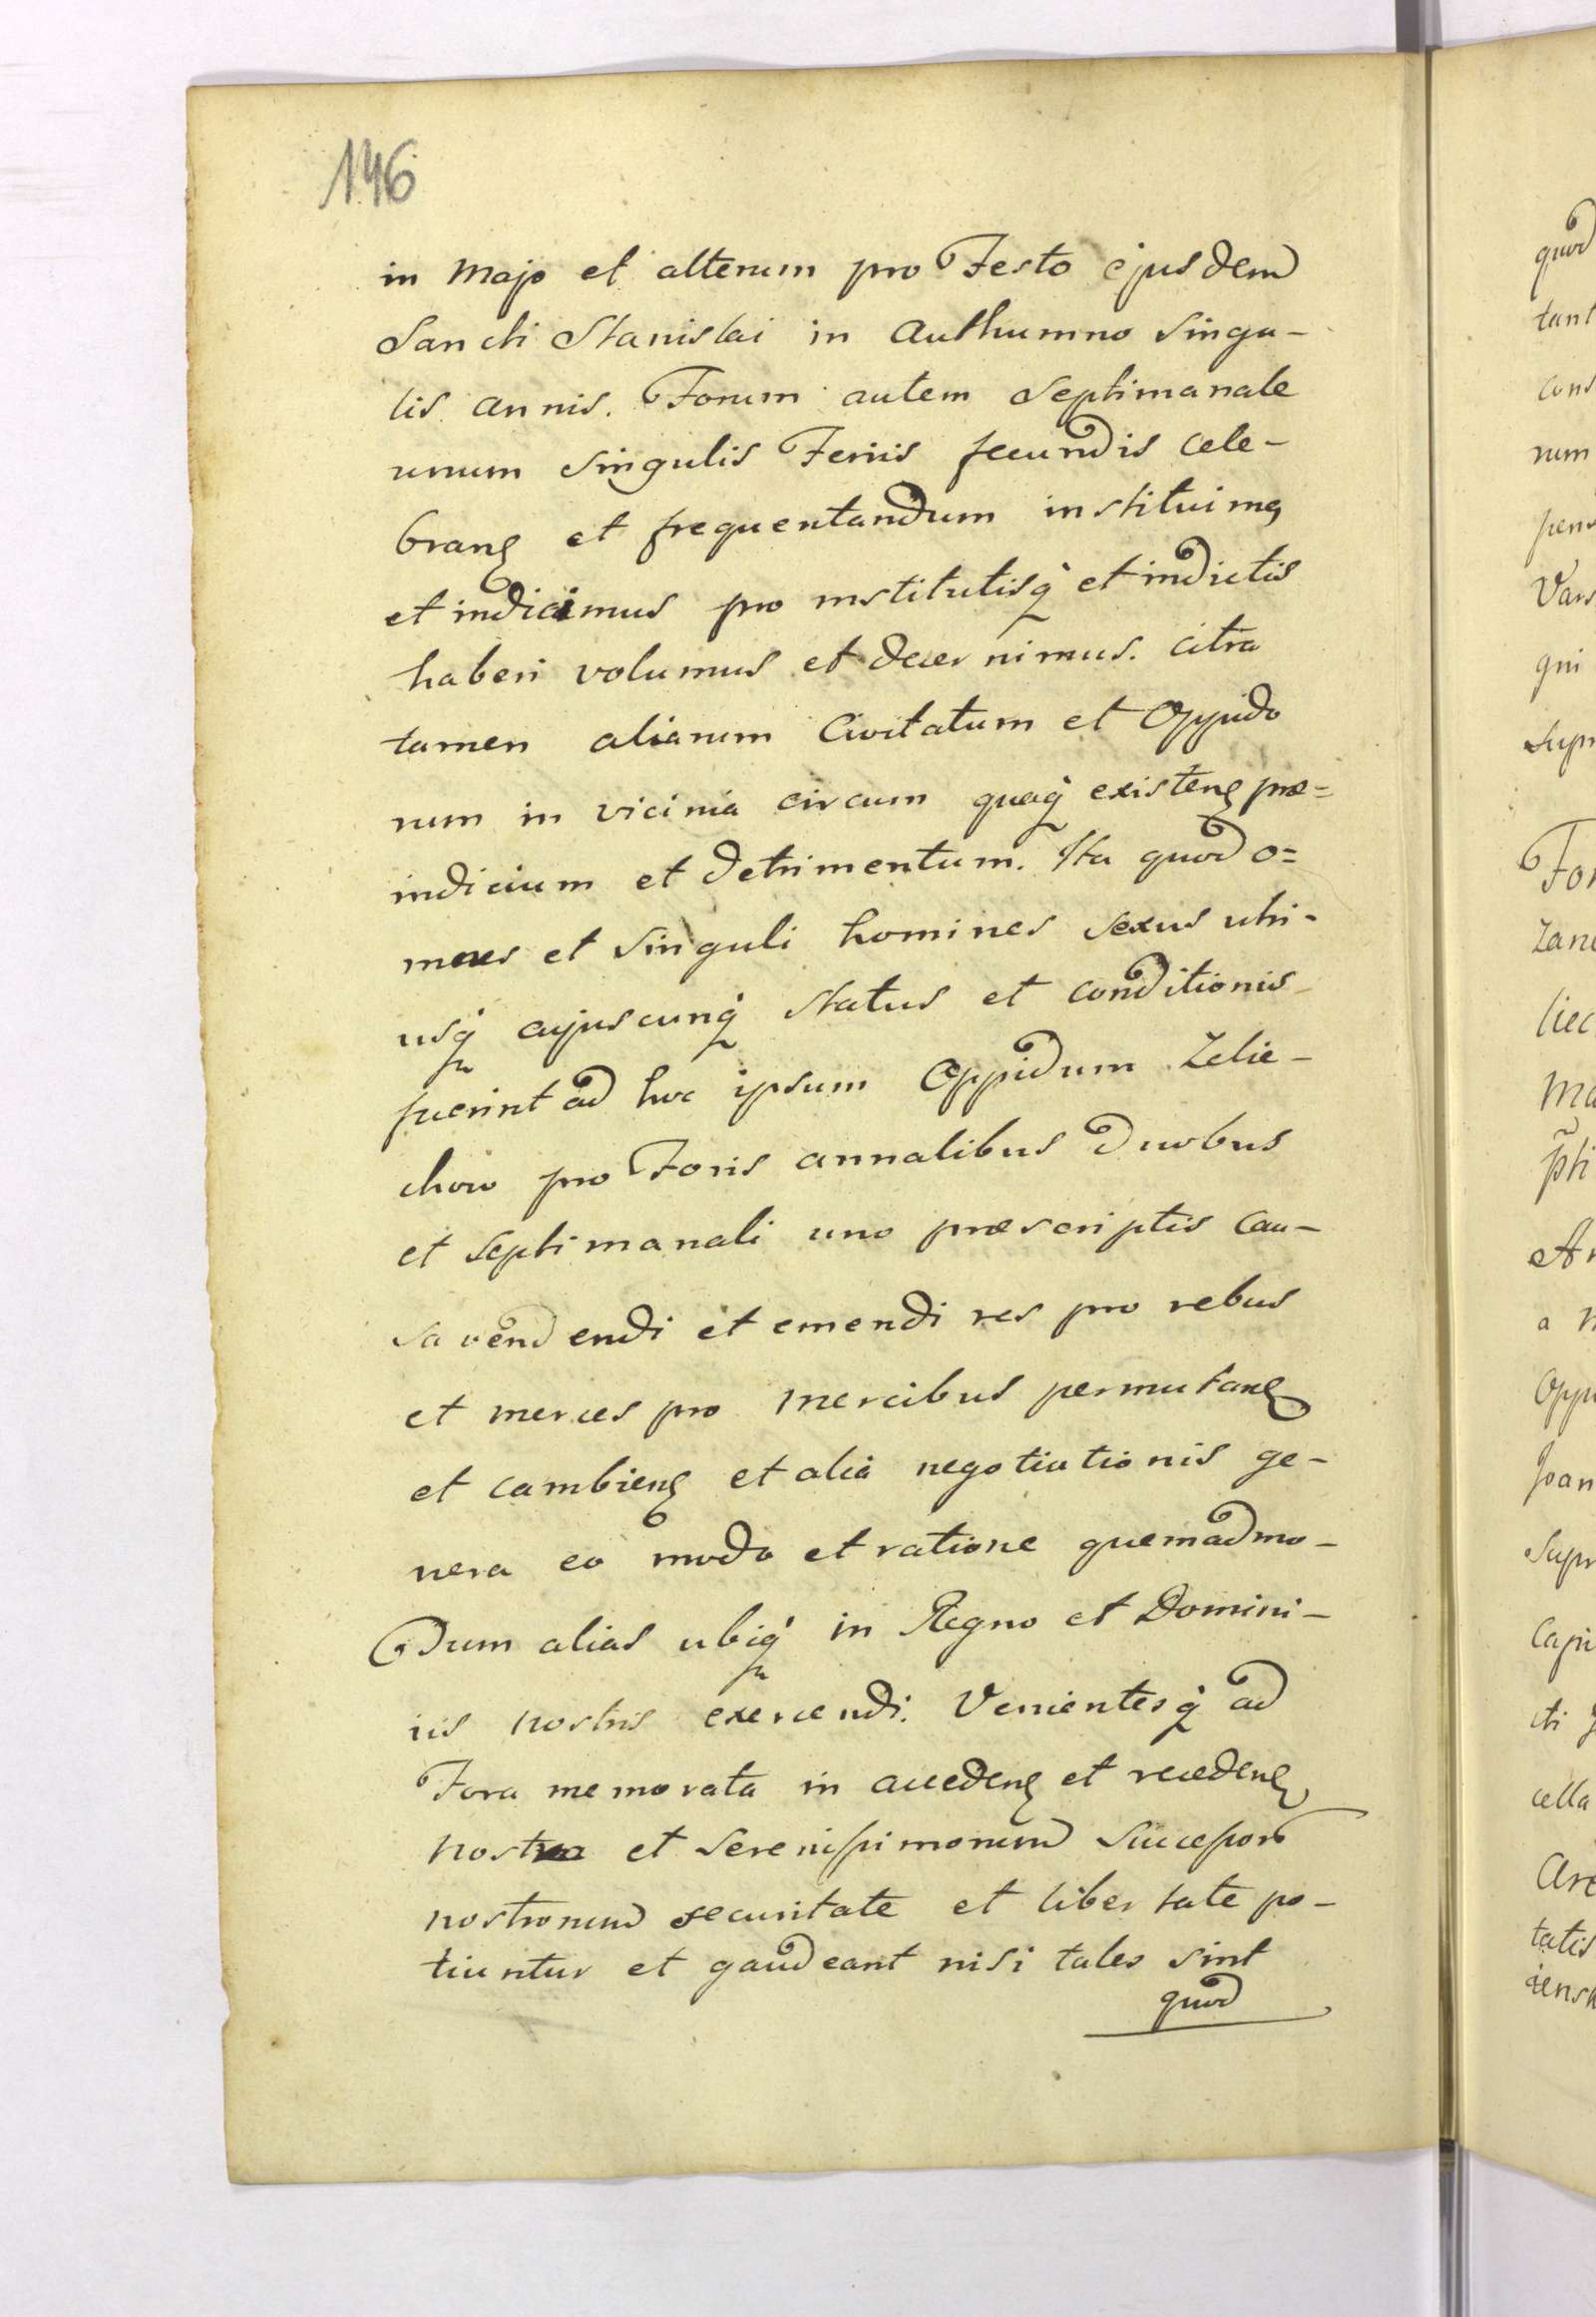 146
in Majo et alterum pro Festo ejusdem
Sancti Stanislai in Authumno singu-
lis annis. Forum autem Septimanale
unum singulis Feriis secundis cele-
branḍ et frequentandum instituimꝰ
et indicimus pro institutisq́ et indictis
haberi volumus et decernimus. citra
tamen aliarum Civitatum et Oppido
rum in vicinia circum quaq́ existenꝭ præ=
indicium et detrimentum. Ita quod o=
mnes et singuli homines sexus utri-
usq́ cujuscunq́ status et conditionis
fuerint ad hoc ipsum Oppidum Zelie-
chow pro Foris annalibus duobus
et septimanali uno præscriptis cau-
sa vendendi et emendi res pro rebus
et merces pro mercibus permutanꝭ
et cambienꝭ et alia negotiationis ge-
nera eo modo et ratione quemadmo-
dum alias ubiq́ in Regno et Domini-
iis nostris exercendi. Venientesq́ ad
Fora memorata in accedenꝭ et recedenꝭ
nostra et Serenissimorum Successor
nostrorum securitate et libertate po-
tiuntur et gaudeant nisi tales sint
quod
quod
tant
cons
rum
pens
Vars
qui
supr
For
Zane
liec
Ma
p̃ti
a
Oppi
Joan
Supr
Capi
cti
cella
Arc
tatis
iensk